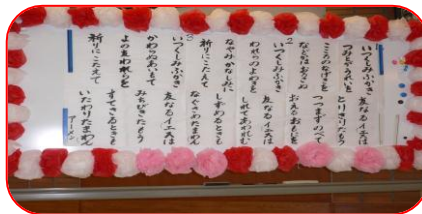 いつくしみふかき 友なるイエスは
つみとがうれいを とりさりたもう
こころのなげきを つつまずのべて
などかはおろさぬ おえるおもにを
2
いつくしみふかき 友なるイエスは
われらのよわきを しりてあわれむ
なやみかなしみに しずめるときも
祈りにこたえて なぐさめたまわん
3
いつくしみふかき 友なるイエスは
かわらぬあいもて みちびきたもう
よの友われらを すてさるときも
祈りにこたえて いたわりたまわん
アーメン